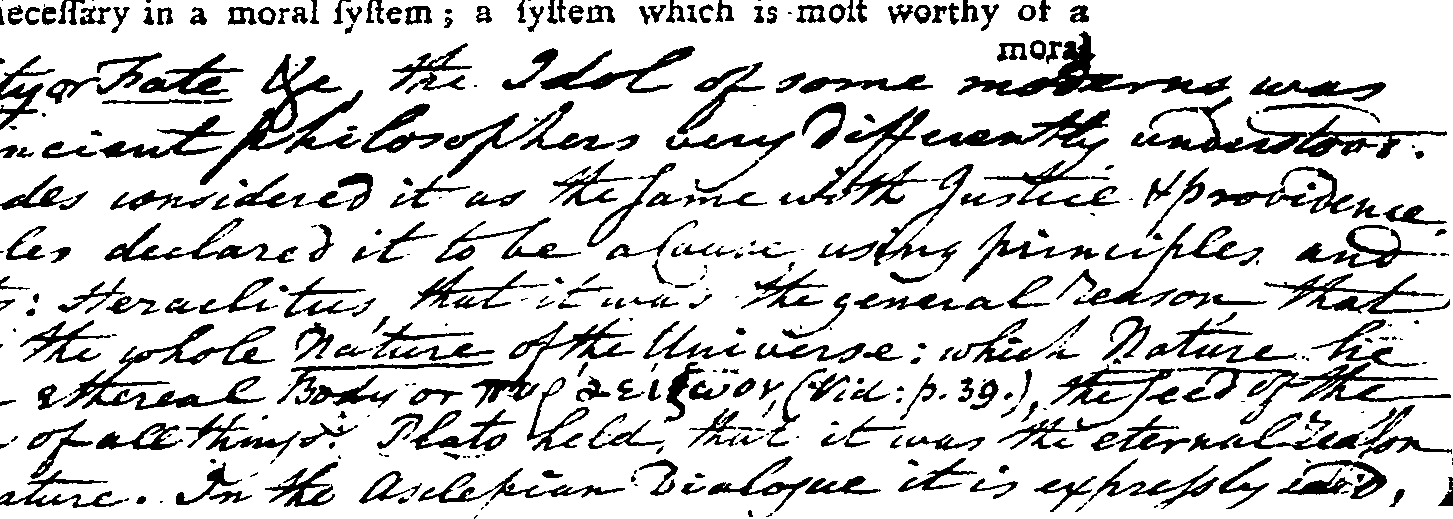 neceſſary in a moral ſyſtem; a ſyſtem which is moſt worthy of a
moral
ty or Fate &c, the Idol of some moderns was
ncient philosophers very differently understood.
des considered it as the ſame with Justice & providence
les declared it to be a Cause, using principles and
s: Heraclitus, that it was the general reason that
the whole Nature of the Universe: which Nature he
ethereal Body or πυρ αειζωον, (Vid: p. 39.), the ſeed of the
of all things. Plato held, that it was the eternal reaſon
ature. In the Asclepian Dialogue it is expreſsly said,